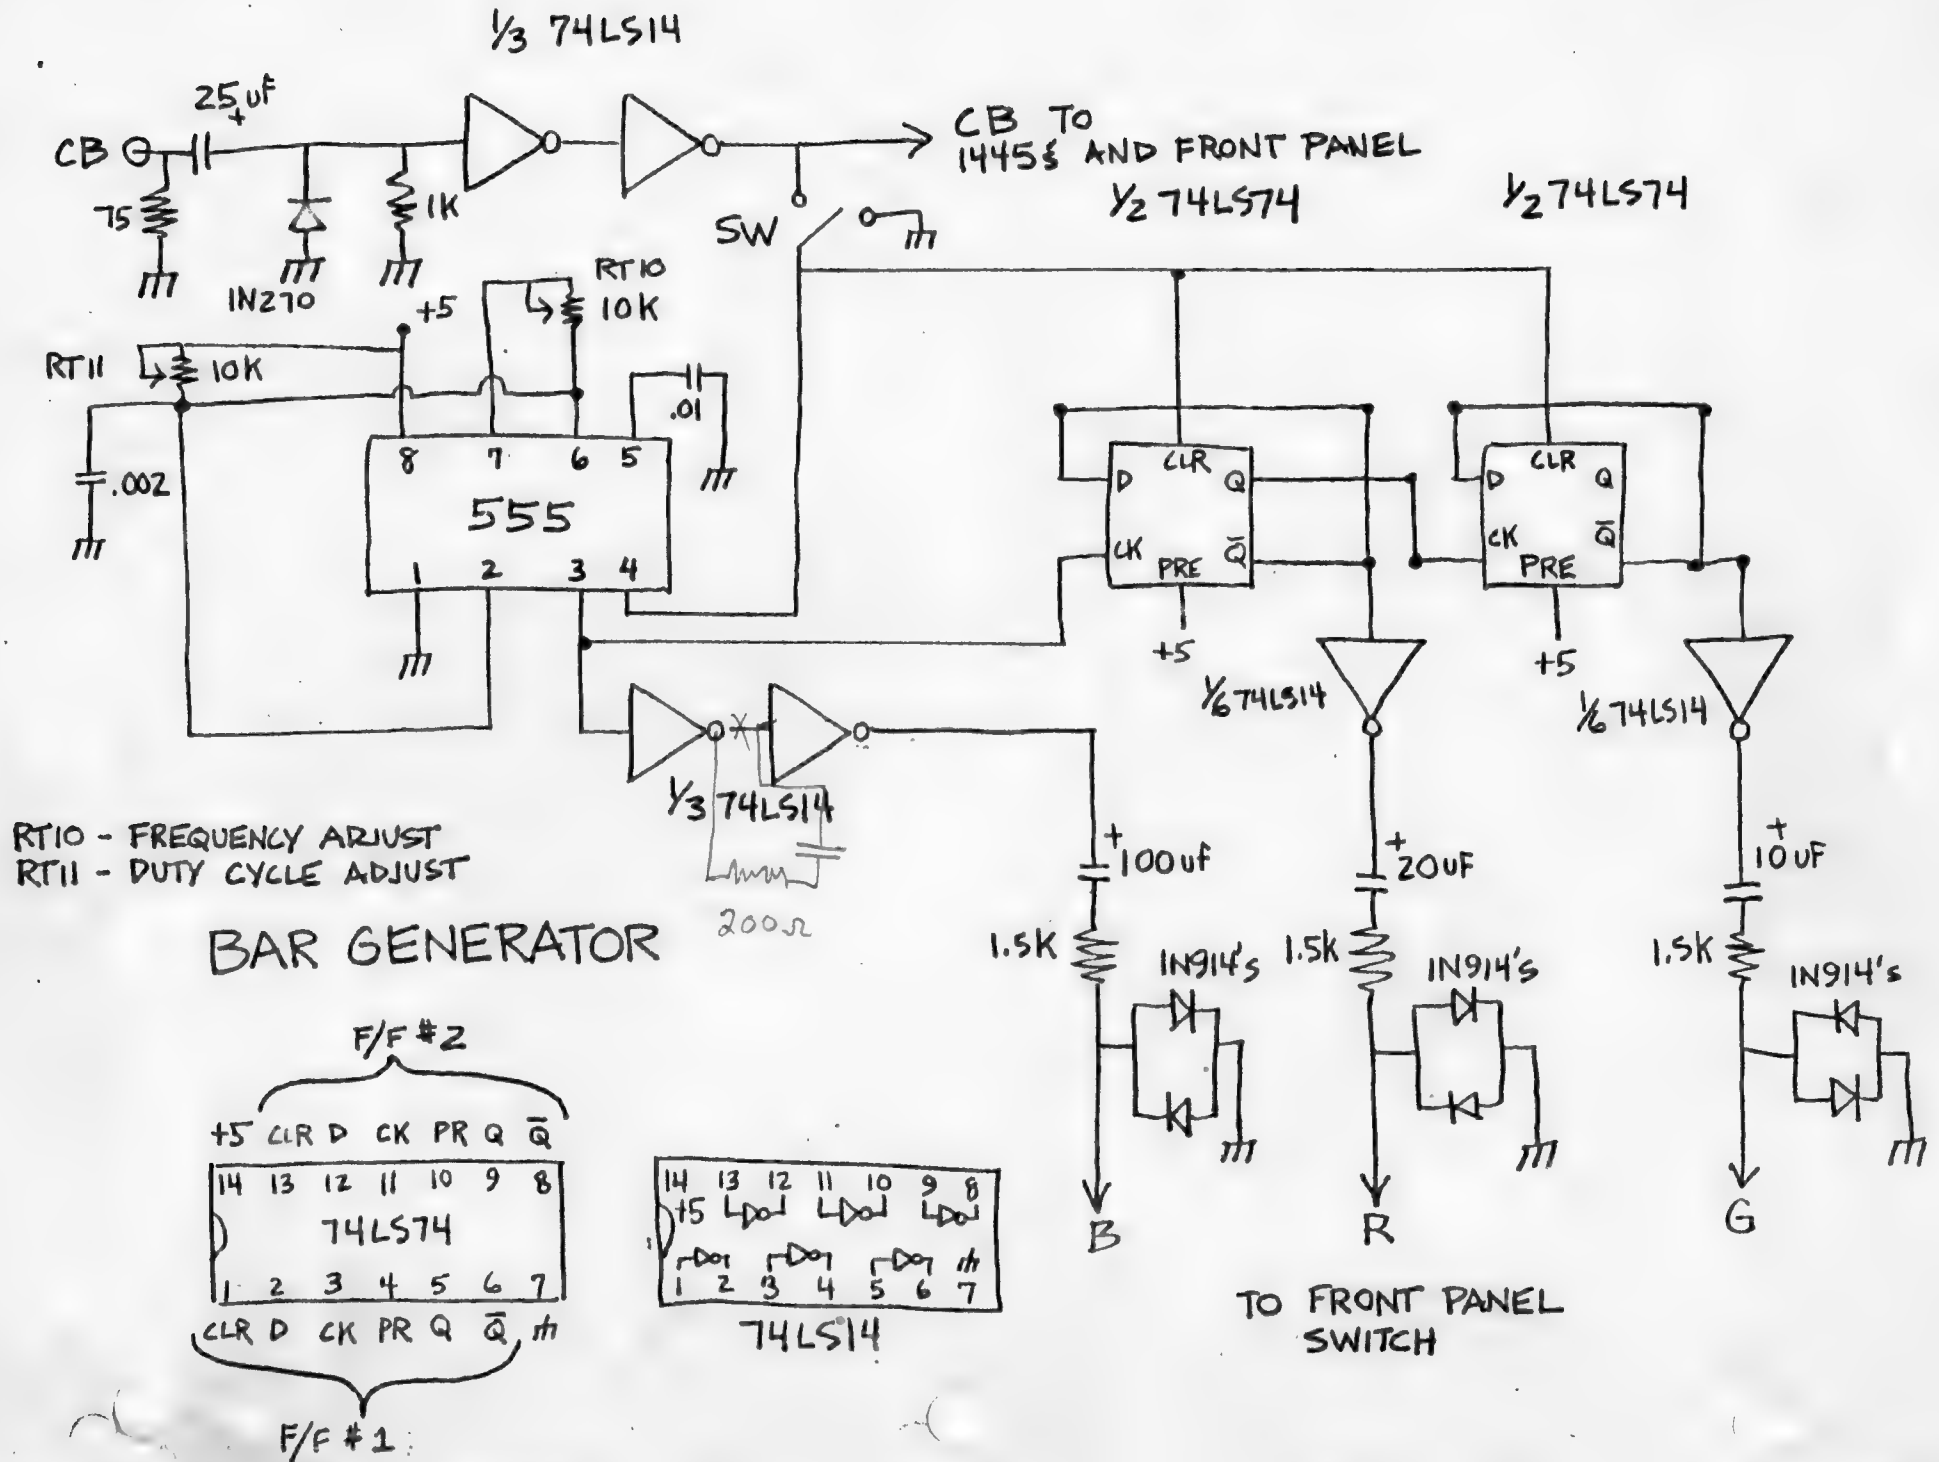 1/3 74LS14
25uF
+
CB
75
1N270
1K
CB TO
1445s AND FRONT PANEL
SW
1/2 74LS74
1/2 74LS74
RT10
10K
+5
RT11
10K
.01
.002
8 7 6 5
555
1 2 3 4
CLR
D Q
CK Q̅
PRE
+5
CLR
D Q
CK Q̅
PRE
+5
1/6 74LS14
1/6 74LS14
1/3 74LS14
200Ω
RT10 - FREQUENCY ADJUST
RT11 - DUTY CYCLE ADJUST
BAR GENERATOR
+
100uF
1.5K
1N914's
B
+
20uF
1.5K
1N914's
R
+
10uF
1.5K
1N914's
G
TO FRONT PANEL
SWITCH
F/F #2
+5 CLR D CK PR Q Q̅
14 13 12 11 10 9 8
74LS74
1 2 3 4 5 6 7
CLR D CK PR Q Q̅
F/F #1
14 13 12 11 10 9 8
+5
1 2 3 4 5 6 7
74LS14